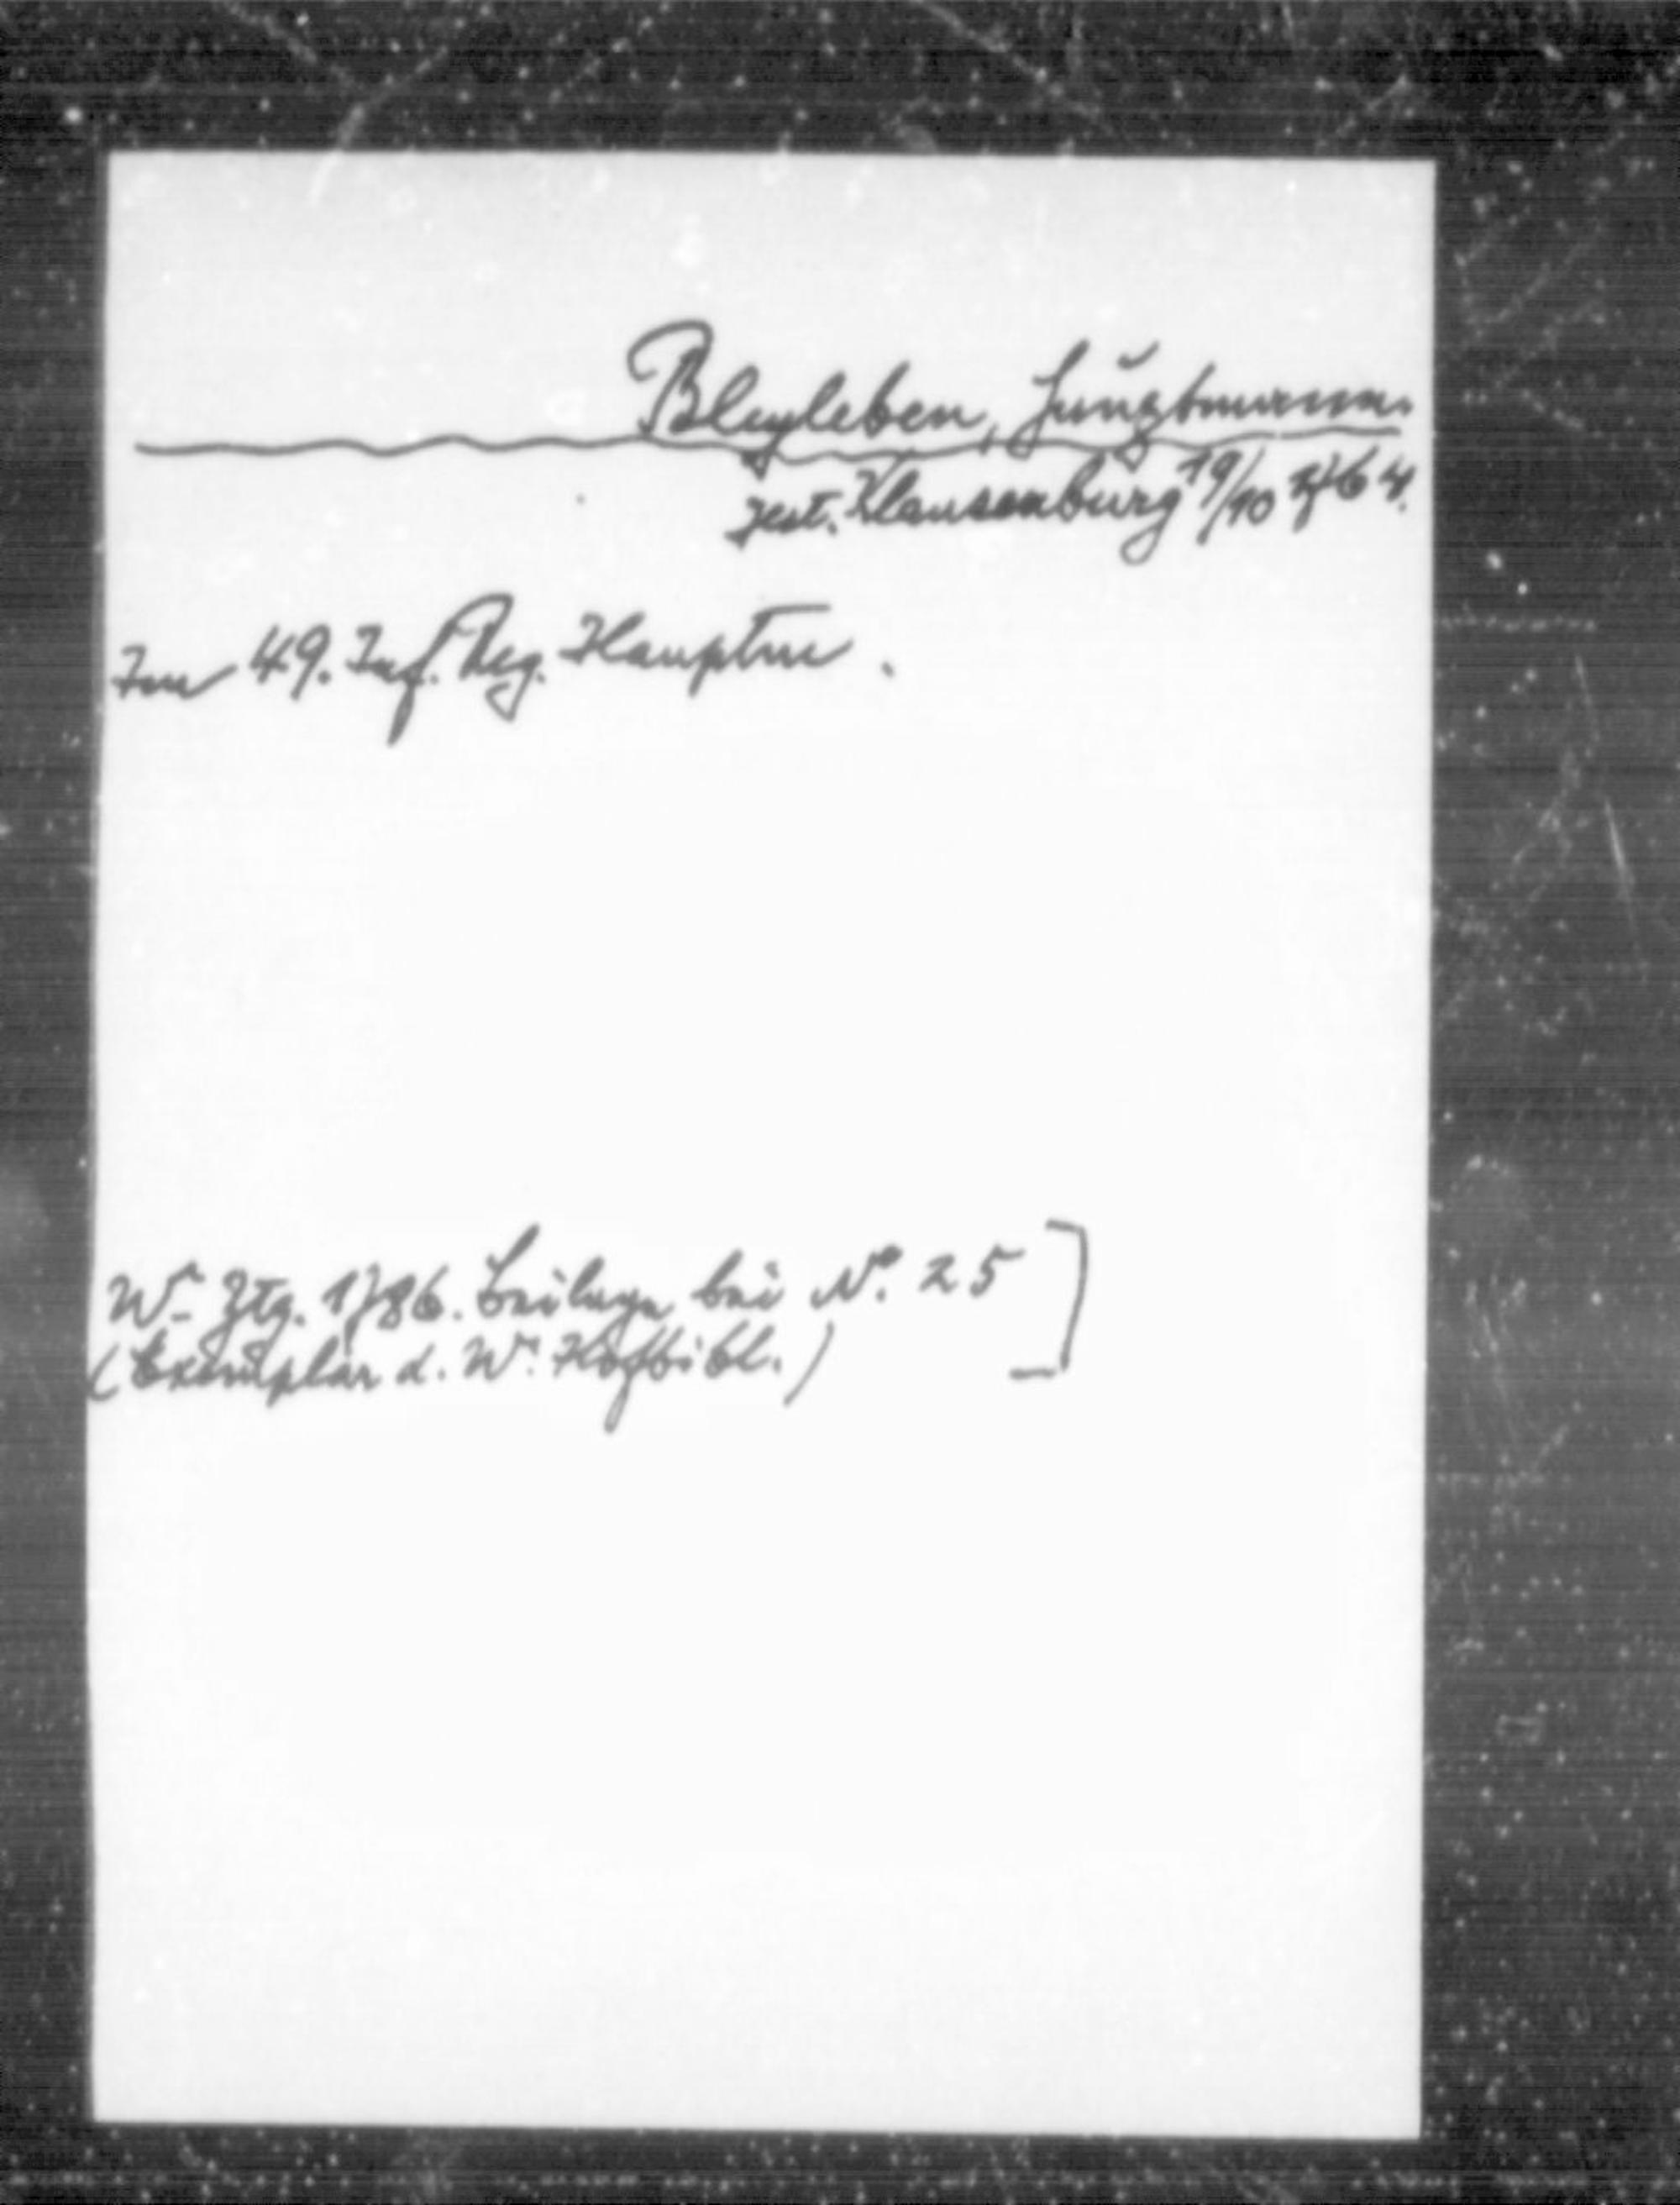 Bleyleben, Hauptmann.
gest. Klausenburg 19/10 764.
Im 49. Inf. Reg. Hauptm.
Wr Ztg. 1786. Beilage bei No. 25
(Exemplar d. Wr. Hofbibl.)